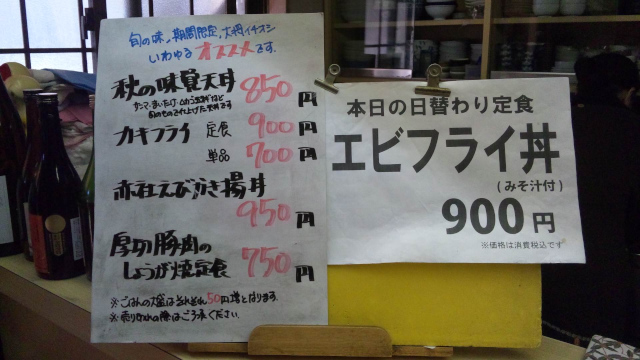 旬の味、期間限定、大将イチオシ
いわゆるオススメです。
秋の味覚天丼 850円
カキフライ 定食 900円
単品 700円
赤社えびかき揚丼
950円
厚切豚肉の
しょうが焼定食 750円
※ごはんの大盛はそれぞれ50円増となります。
※売り切れの際はご了承ください。
本日の日替わり定食
エビフライ丼
(みそ汁付)
900円
※価格は消費税込です